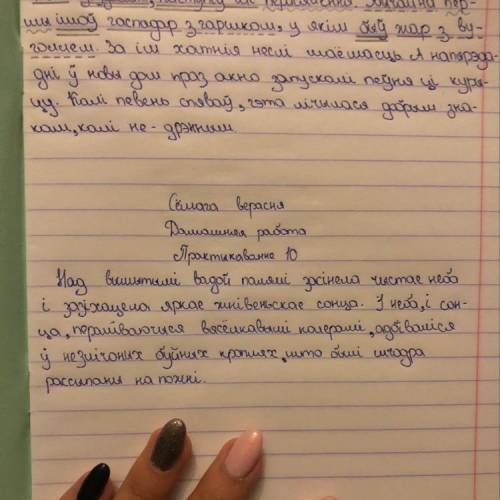 шы ішоў гаспадар з гаршком, у якім быў жар з ву-
голлем. За ім хатнія неслі маёмасць. А напярэда-
дні ў новы дом праз акно запускалі пеўня ці куры-
цу. Калі певень спяваў, гэта лічылася добрым зна-
кам, калі не - дрэнным.
Сёмага верасня
Дамашняя работа
Практыкаванне 10
Над вымытымі вадой палямі засінела чыстае неба
і заззяцела яркае жнівеньскае сонца. І неба, і сон-
ца, пераліваючыся вясёлкавымі колерамі, адбіваліся
ў незлічоных буйных кроплях, што былі шчодра
рассыпаны на пожні.